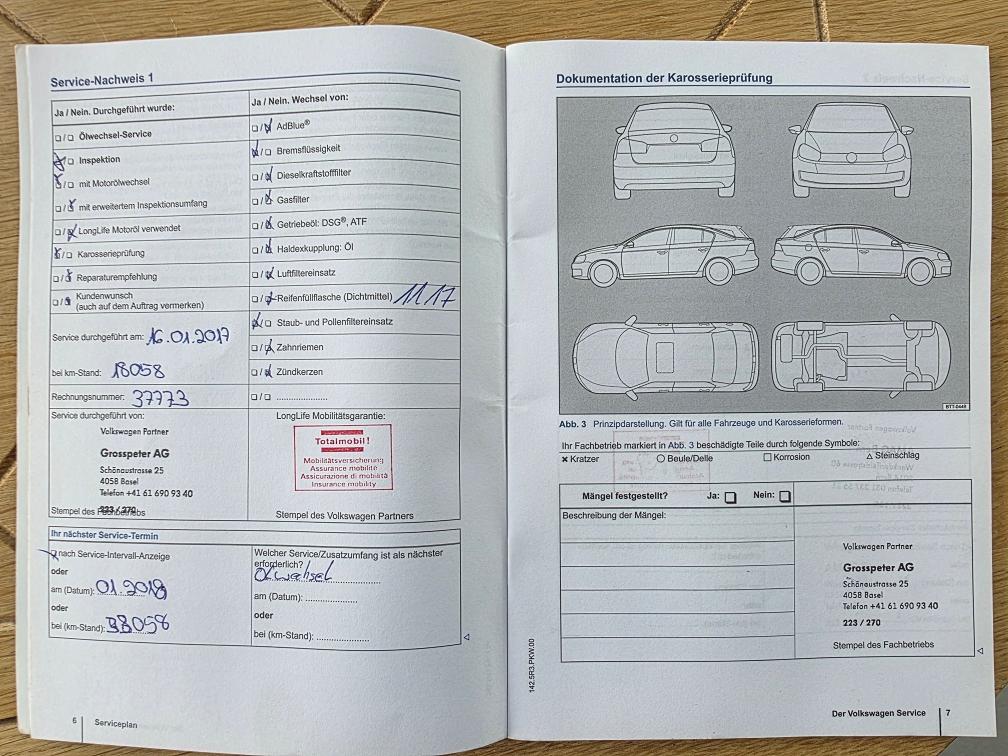 Service-Nachweis 1
Ja / Nein. Durchgeführt wurde:
Ölwechsel-Service
Inspektion
mit Motorölwechsel
mit erweitertem Inspektionsumfang
LongLife Motoröl verwendet
Karosserieprüfung
Reparaturempfehlung
Kundenwunsch
(auch auf dem Auftrag vermerken)
Service durchgeführt am: 16.01.2017
bei km-Stand: 18058
Rechnungsnummer: 37773
Ja / Nein. Wechsel von:
AdBlue®
Bremsflüssigkeit
Dieselkraftstofffilter
Gasfilter
Getriebeöl: DSG®, ATF
Haldexkupplung: Öl
Luftfiltereinsatz
Reifenfüllflasche (Dichtmittel) 11.17
Staub- und Pollenfiltereinsatz
Zahnriemen
Zündkerzen
Service durchgeführt von:
Volkswagen Partner
Grosspeter AG
Schönaustrasse 25
4058 Basel
Telefon +41 61 690 93 40
223 / 270
Stempel des Fachbetriebs
LongLife Mobilitätsgarantie:
Totalmobil!
Mobilitätsversicherung
Assurance mobilité
Assicurazione di mobilità
Insurance mobility
Stempel des Volkswagen Partners
Ihr nächster Service-Termin
nach Service-Intervall-Anzeige
oder
am (Datum): 01.2019
oder
bei (km-Stand): 38058
Welcher Service/Zusatzumfang ist als nächster
erforderlich?
Ölwechsel
am (Datum):
oder
bei (km-Stand):
6 Serviceplan
Dokumentation der Karosserieprüfung
BTT-0448
Abb. 3 Prinzipdarstellung. Gilt für alle Fahrzeuge und Karosserieformen.
Ihr Fachbetrieb markiert in Abb. 3 beschädigte Teile durch folgende Symbole:
Kratzer Beule/Delle Korrosion Steinschlag
Mängel festgestellt? Ja: Nein:
Beschreibung der Mängel:
Volkswagen Partner
Grosspeter AG
Schönaustrasse 25
4058 Basel
Telefon +41 61 690 93 40
223 / 270
Stempel des Fachbetriebs
142.5R3.PKW.00
Der Volkswagen Service 7